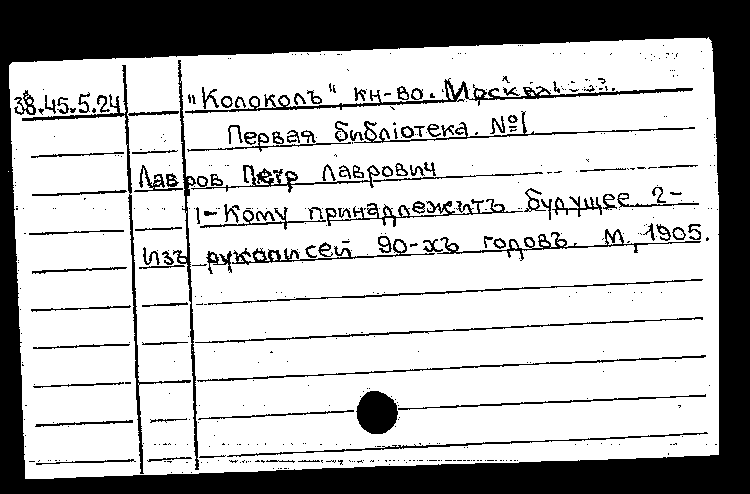 38.45.5.24 "Колоколъ", кн-во. Москва
Первая библіотека. №1.
Лавров, Петр Лаврович
1-Кому принадлежитъ будущее. 2-
Изъ рукописей 90-хъ годовъ. М., 1905.